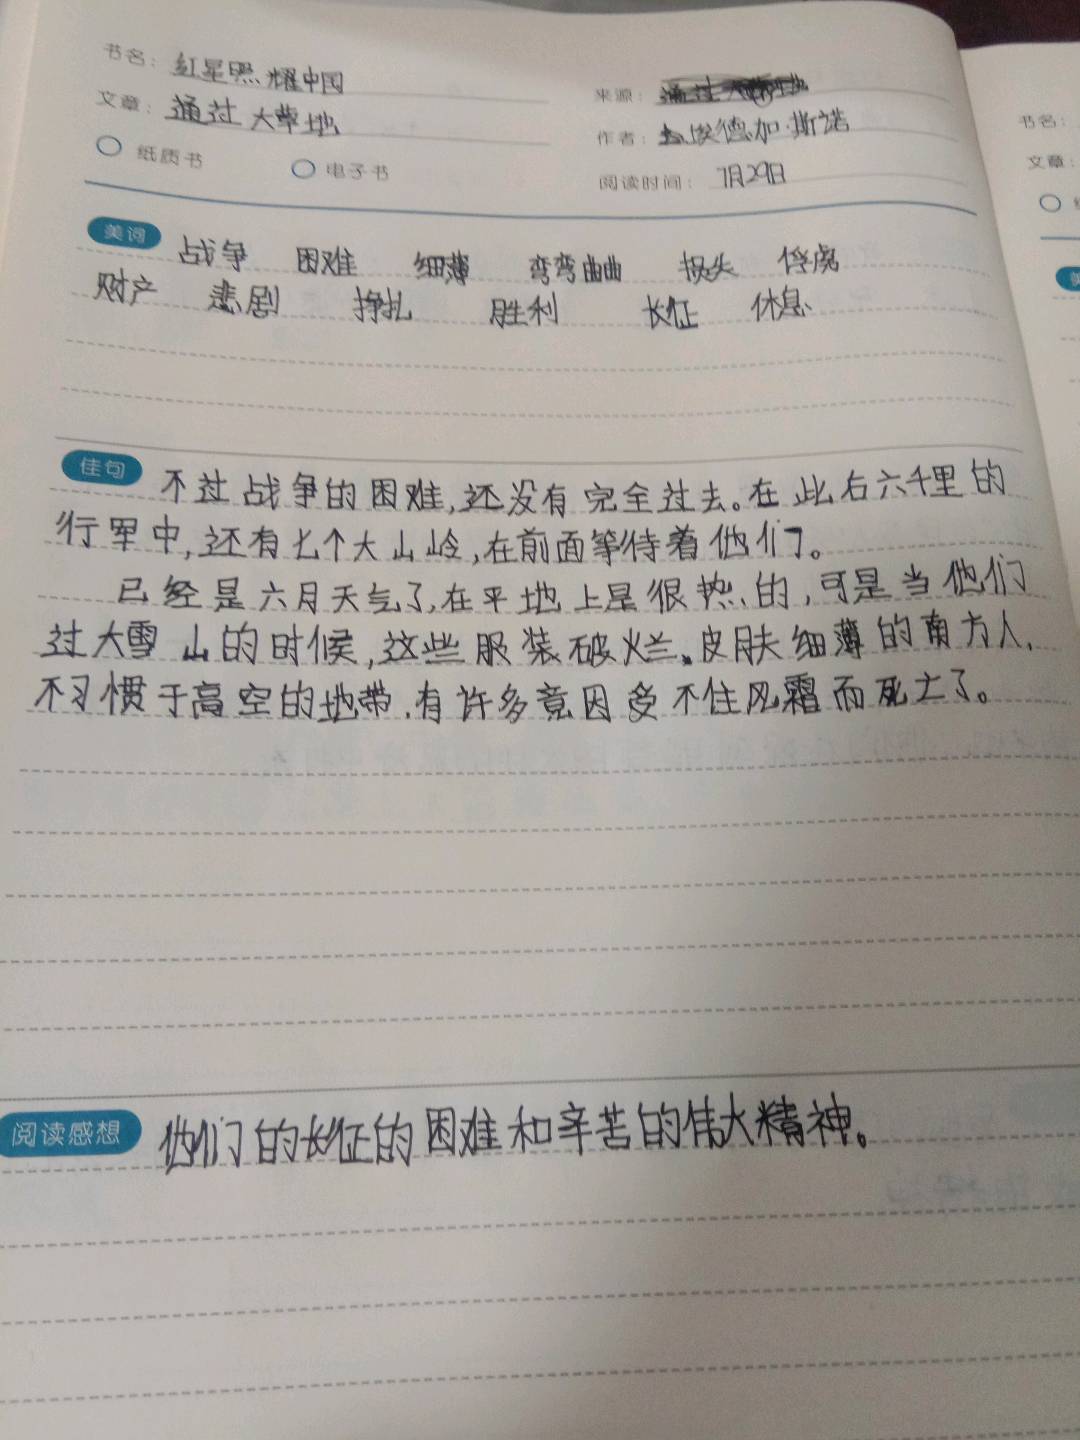 书名：红星照耀中国
来源：通过大草地
文章：通过大草地
作者：埃德加·斯诺
纸质书 电子书
阅读时间：7月29日
美词 战争 困难 细薄 弯弯曲曲 损失 俘虏
财产 悲剧 挣扎 胜利 长征 休息
佳句 不过战争的困难,还没有完全过去。在此右六千里的
行军中,还有七个大山岭,在前面等待着他们。
已经是六月天气了,在平地上是很热的,可是当他们
过大雪山的时候,这些服装破烂、皮肤细薄的南方人,
不习惯于高空的地带,有许多竟因受不住风霜而死亡了。
阅读感想 他们的长征的困难和辛苦的伟大精神。
书名：
文章：